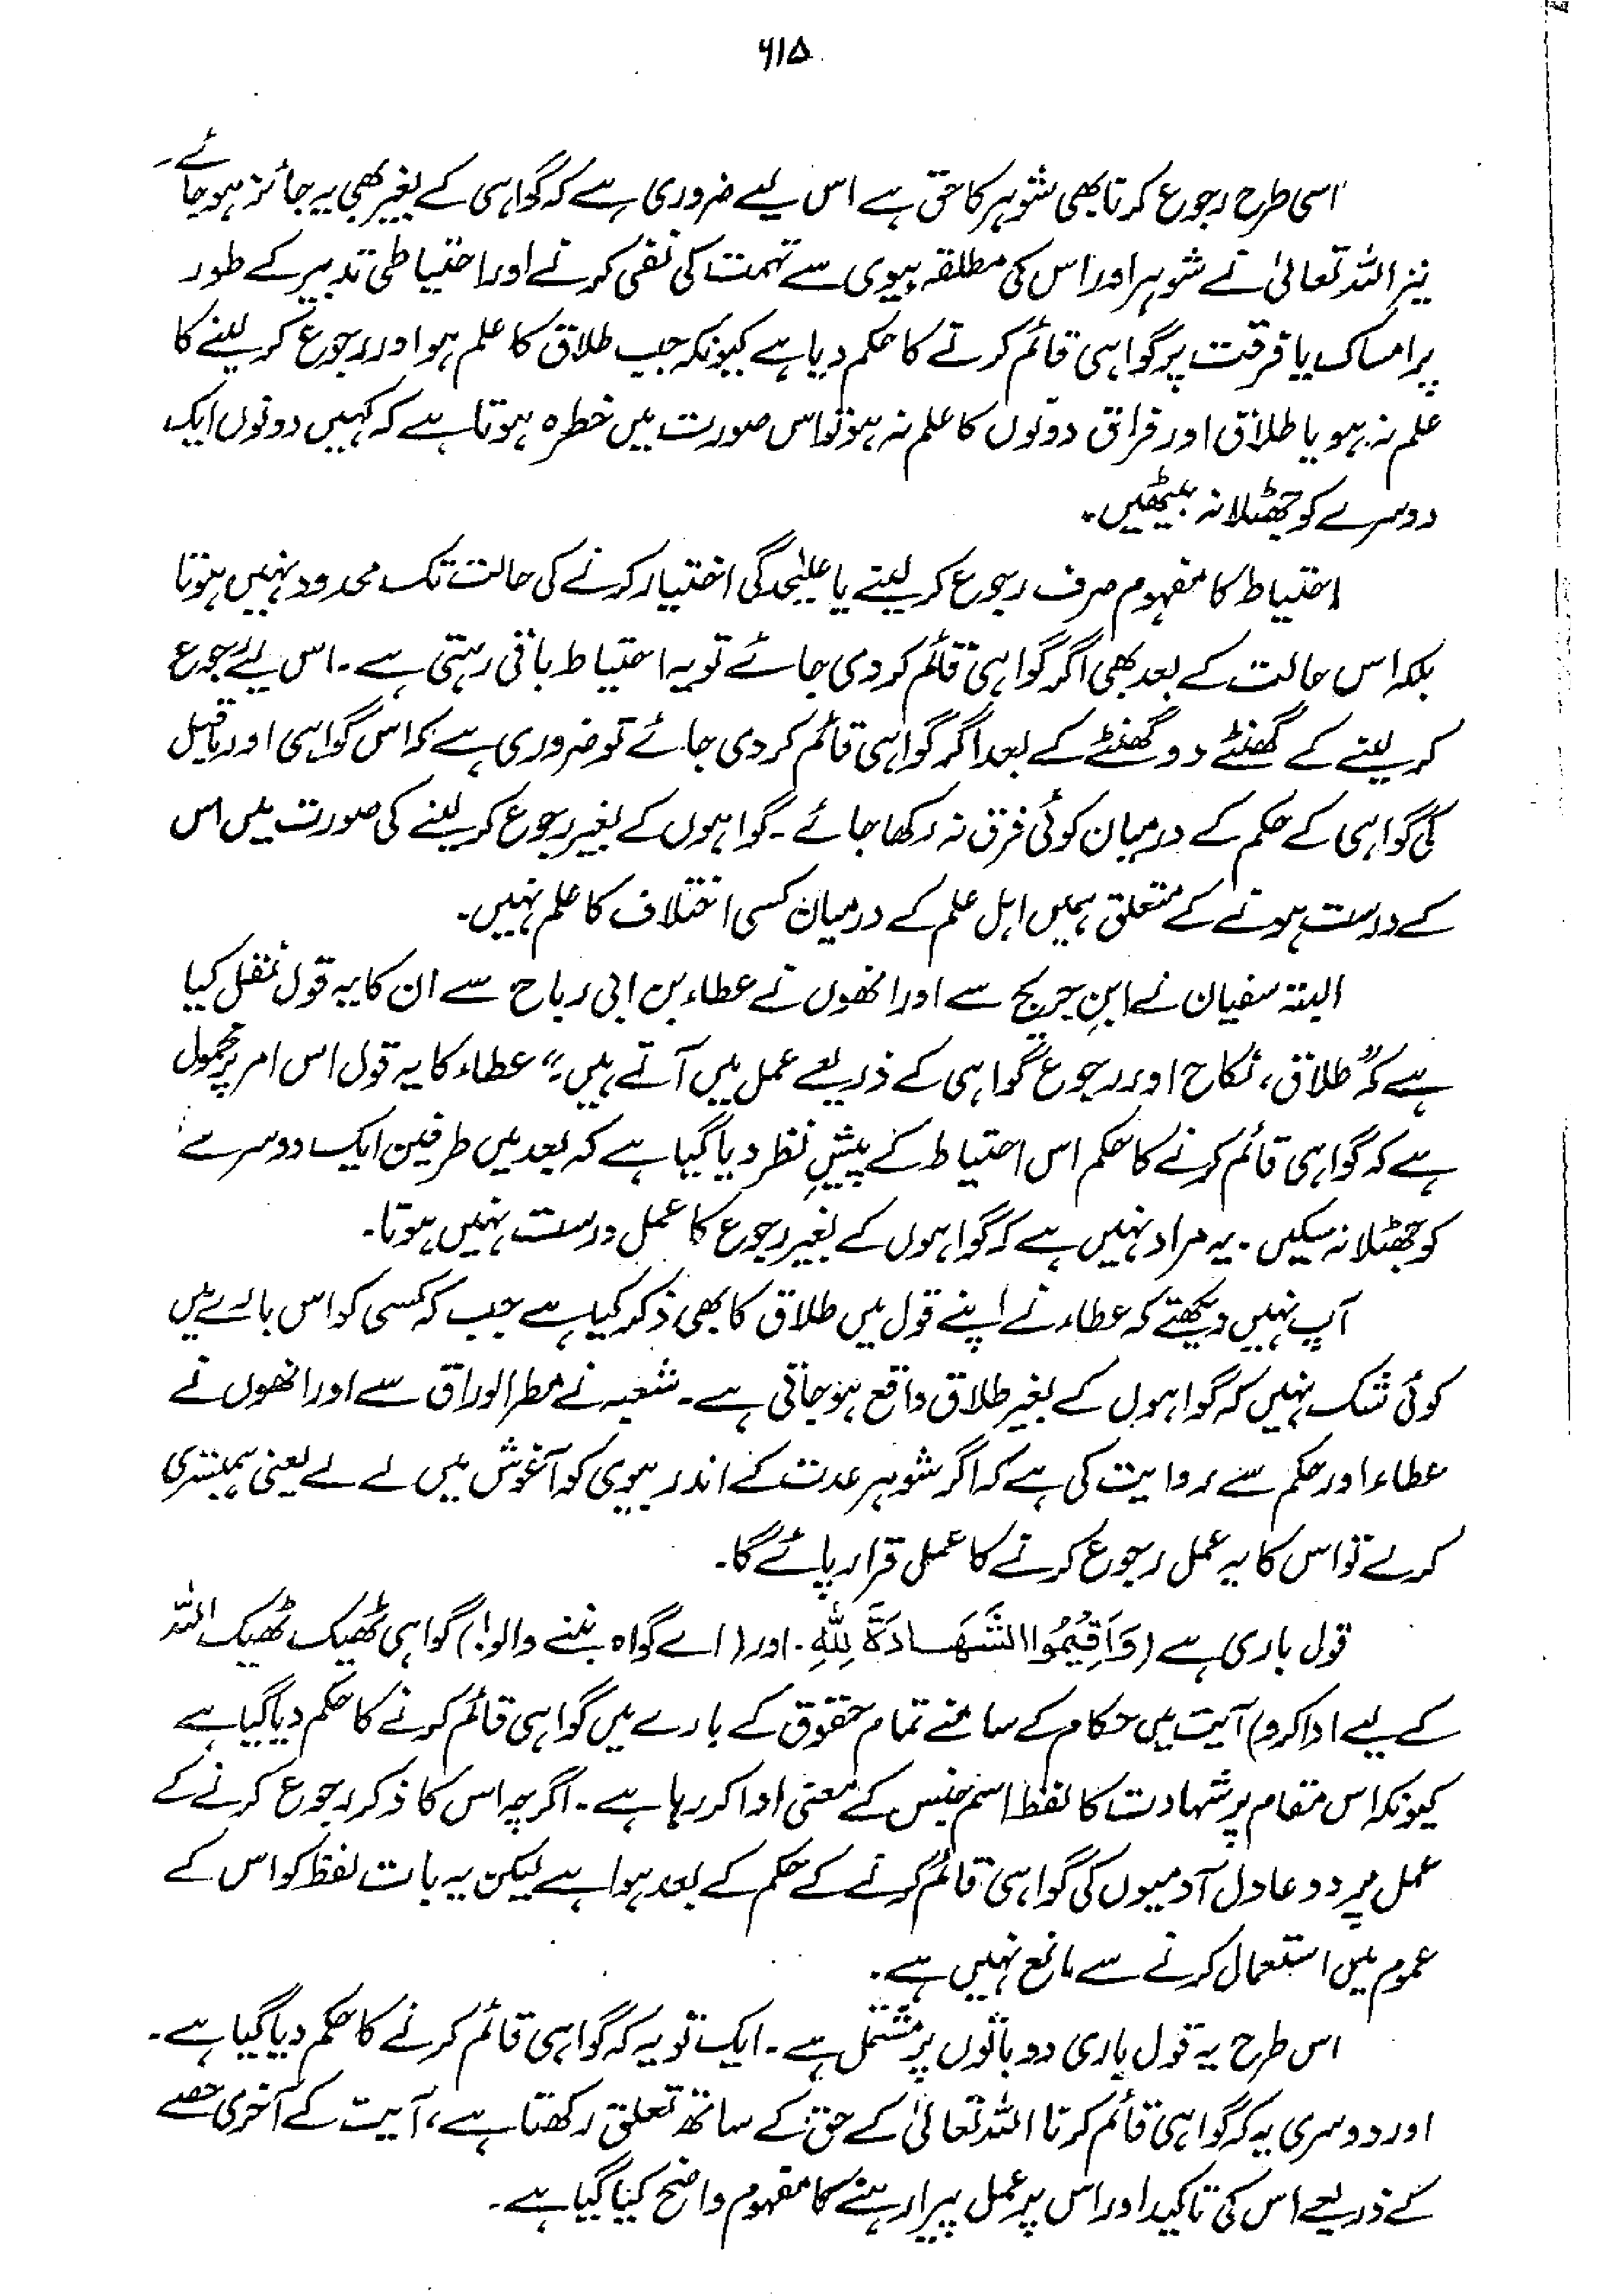 ۶۱۵
اسی طرح رجوع کرنا بھی شوہر کا حق ہے اس لیے ضروری ہے کہ گواہی کے بغیر بھی یہ جائز ہو جائے۔
نیز اللہ تعالیٰ نے شوہر اور اس کی مطلقہ بیوی سے تہمت کی نفی کرنے اور احتیاطی تدبیر کے طور
پر امساک یا فرقت پر گواہی قائم کرنے کا حکم دیا ہے کیونکہ جب طلاق کا علم ہو اور رجوع کر لینے کا
علم نہ ہو یا طلاق اور فراق دونوں کا علم نہ ہو تو اس صورت میں خطرہ ہوتا ہے کہ کہیں دونوں ایک
دوسرے کو جھٹلا نہ بیٹھیں۔
احتیاط کا مفہوم صرف رجوع کر لینے یا علیٰحدگی اختیار کرنے کی حالت تک محدود نہیں ہوتا
بلکہ اس حالت کے بعد بھی اگر گواہی قائم کر دی جائے تو یہ احتیاط باقی رہتی ہے۔ اس لیے رجوع
کر لینے کے گھنٹے دو گھنٹے کے بعد اگر گواہی قائم کر دی جائے تو ضروری ہے کہ اس گواہی اور ماقبل
کی گواہی کے حکم کے درمیان کوئی فرق نہ رکھا جائے۔ گواہوں کے بغیر رجوع کر لینے کی صورت میں اس
کے درست ہونے کے متعلق ہمیں اہل علم کے درمیان کسی اختلاف کا علم نہیں۔
البتہ سفیان نے ابنِ جریج سے اور انھوں نے عطاء بن ابی رباح سے ان کا یہ قول نقل کیا
ہے کہ "طلاق، نکاح اور رجوع گواہی کے ذریعے عمل میں آتے ہیں۔" عطاء کا یہ قول اس امر پر محمول
ہے کہ گواہی قائم کرنے کا حکم اس احتیاط کے پیشِ نظر دیا گیا ہے کہ بعد میں طرفین ایک دوسرے
کو جھٹلا نہ سکیں۔ یہ مراد نہیں ہے کہ گواہوں کے بغیر رجوع کا عمل درست نہیں ہوتا۔
آپ نہیں دیکھتے کہ عطاء نے اپنے قول میں طلاق کا بھی ذکر کیا ہے جب کہ کسی کو اس بارے میں
کوئی شک نہیں کہ گواہوں کے بغیر طلاق واقع ہو جاتی ہے۔ شعبہ نے مطر الوراق سے اور انھوں نے
عطاء اور حکم سے روایت کی ہے کہ اگر شوہر عدت کے اندر بیوی کو آغوش میں لے لے یعنی ہمبستری
کرلے تو اس کا یہ عمل رجوع کرنے کا عمل قرار پائے گا۔
قول باری ہے (وَاَقِیْمُوا الشَّھَادَۃَ لِلّٰہِ۔ اور (اے گواہ بننے والو!) گواہی ٹھیک ٹھیک اللہ
کے لیے ادا کرو) آیت میں حکام کے سامنے تمام حقوق کے بارے میں گواہی قائم کرنے کا حکم دیا گیا ہے
کیونکہ اس مقام پر شہادت کا لفظ اسم جنس کے معنی ادا کر رہا ہے۔ اگرچہ اس کا ذکر رجوع کرنے کے
عمل پر دو عادل آدمیوں کی گواہی قائم کرنے کے حکم کے بعد ہوا ہے لیکن یہ بات لفظ کو اس کے
عموم میں استعمال کرنے سے مانع نہیں ہے۔
اس طرح یہ قول باری دو باتوں پر مشتمل ہے۔ ایک تو یہ کہ گواہی قائم کرنے کا حکم دیا گیا ہے۔
اور دوسری یہ کہ گواہی قائم کرنا اللہ تعالیٰ کے حق کے ساتھ تعلق رکھتا ہے، آیت کے آخری حصے
کے ذریعے اس کی تاکید اور اس پر عمل پیرا رہنے کا مفہوم واضح کیا گیا ہے۔